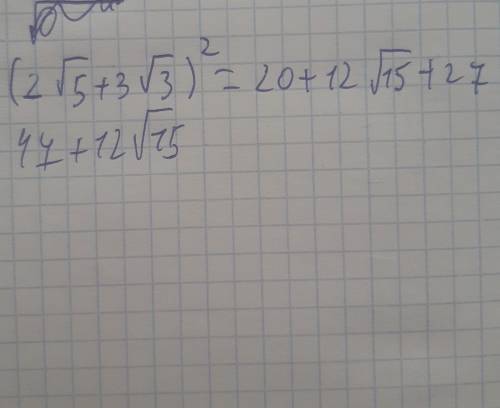 (2√5+3√3)² = 20+12√15+27
47+12√15